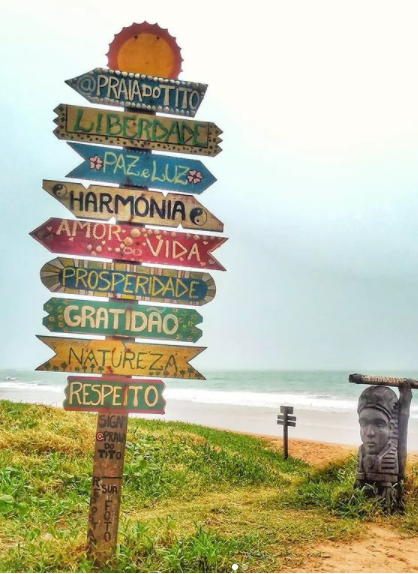 @PRAIADOTITO
LIBERDADE
PAZ e LUZ
HARMÔNIA
AMOR VIDA
PROSPERIDADE
GRATIDÃO
NATUREZA
RESPEITO
SIGN
@PRAIA
DO
TITO
SUA FOTO